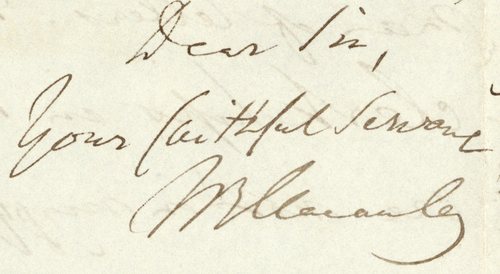 Dear Sir,
Your faithful Servant
T B Macaulay